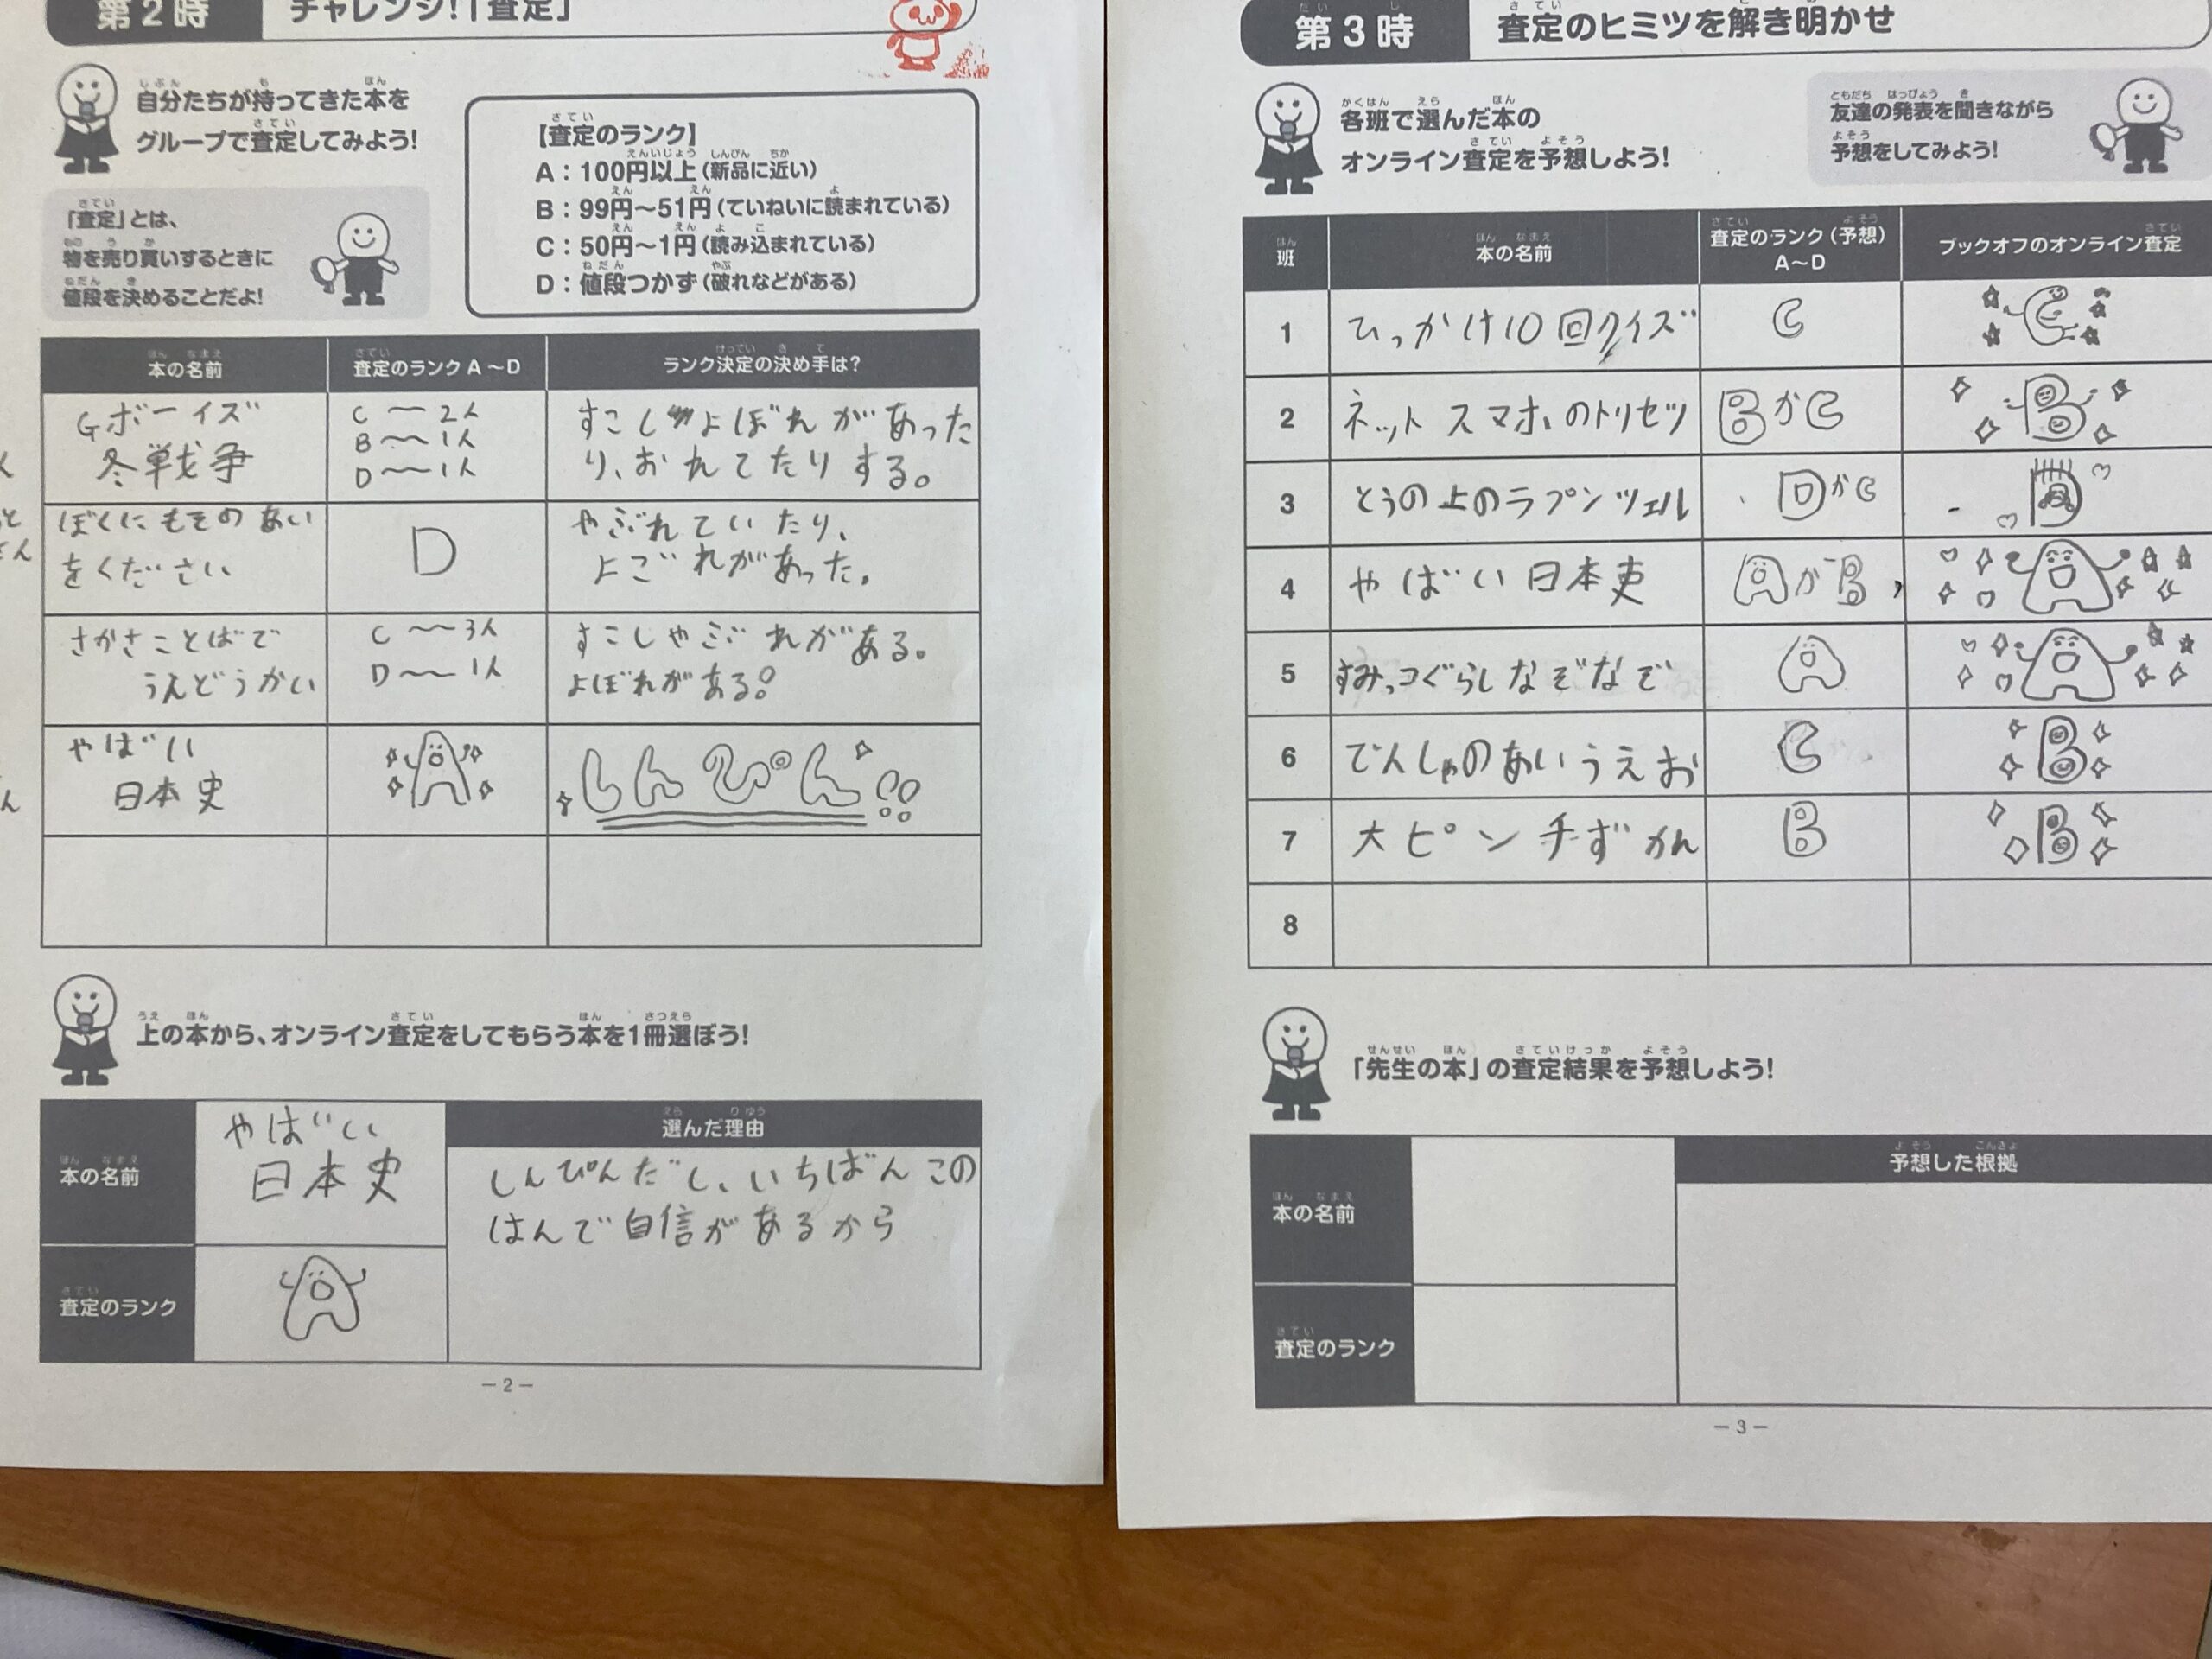 第2時 チャレンジ!「査定」
自分たちが持ってきた本を
グループで査定してみよう!
「査定」とは、
物を売り買いするときに
値段を決めることだよ!
【査定のランク】
A:100円以上(新品に近い)
B:99円~51円(ていねいに読まれている)
C:50円~1円(読み込まれている)
D:値段つかず(破れなどがある)
本の名前 査定のランク A~D ランク決定の決め手は?
Gボーイズ
冬戦争
C~2人
B~1人
D~1人
すこしよぼれがあった
り、おれてたりする。
ぼくにもそのあい
をください
D
やぶれていたり、
よごれがあった。
さかさことばで
うんどうかい
C~3人
D~1人
すこしやぶれがある。
よぼれがある!
やばい
日本史
A
しんぴん!!
上の本から、オンライン査定をしてもらう本を1冊選ぼう!
本の名前
やばい
日本史
査定のランク
A
選んだ理由
しんぴんだし、いちばんこの
はんで自信があるから
-2-
第3時 査定のヒミツを解き明かせ
各班で選んだ本の
オンライン査定を予想しよう!
友達の発表を聞きながら
予想をしてみよう!
班 本の名前 査定のランク(予想) A~D ブックオフのオンライン査定
1 ひっかけ10回クイズ C C
2 ネットスマホのトリセツ BかC B
3 とうの上のラプンツェル DかC D
4 やばい日本史 AかB A
5 すみっコぐらしなぞなぞ A A
6 でんしゃのあいうえお C B
7 大ピンチずかん B B
8
「先生の本」の査定結果を予想しよう!
本の名前
査定のランク
予想した根拠
-3-